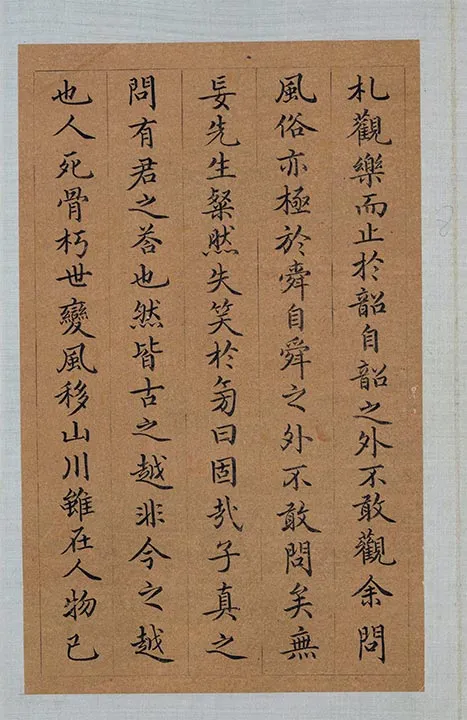 札觀樂而止於韶自韶之外不敢觀余問
風俗亦極於舜自舜之外不敢問矣無
妄先生粲然失笑於旁曰固哉子真之
問有君之荅也然皆古之越非今之越
也人死骨朽世變風移山川雖在人物已